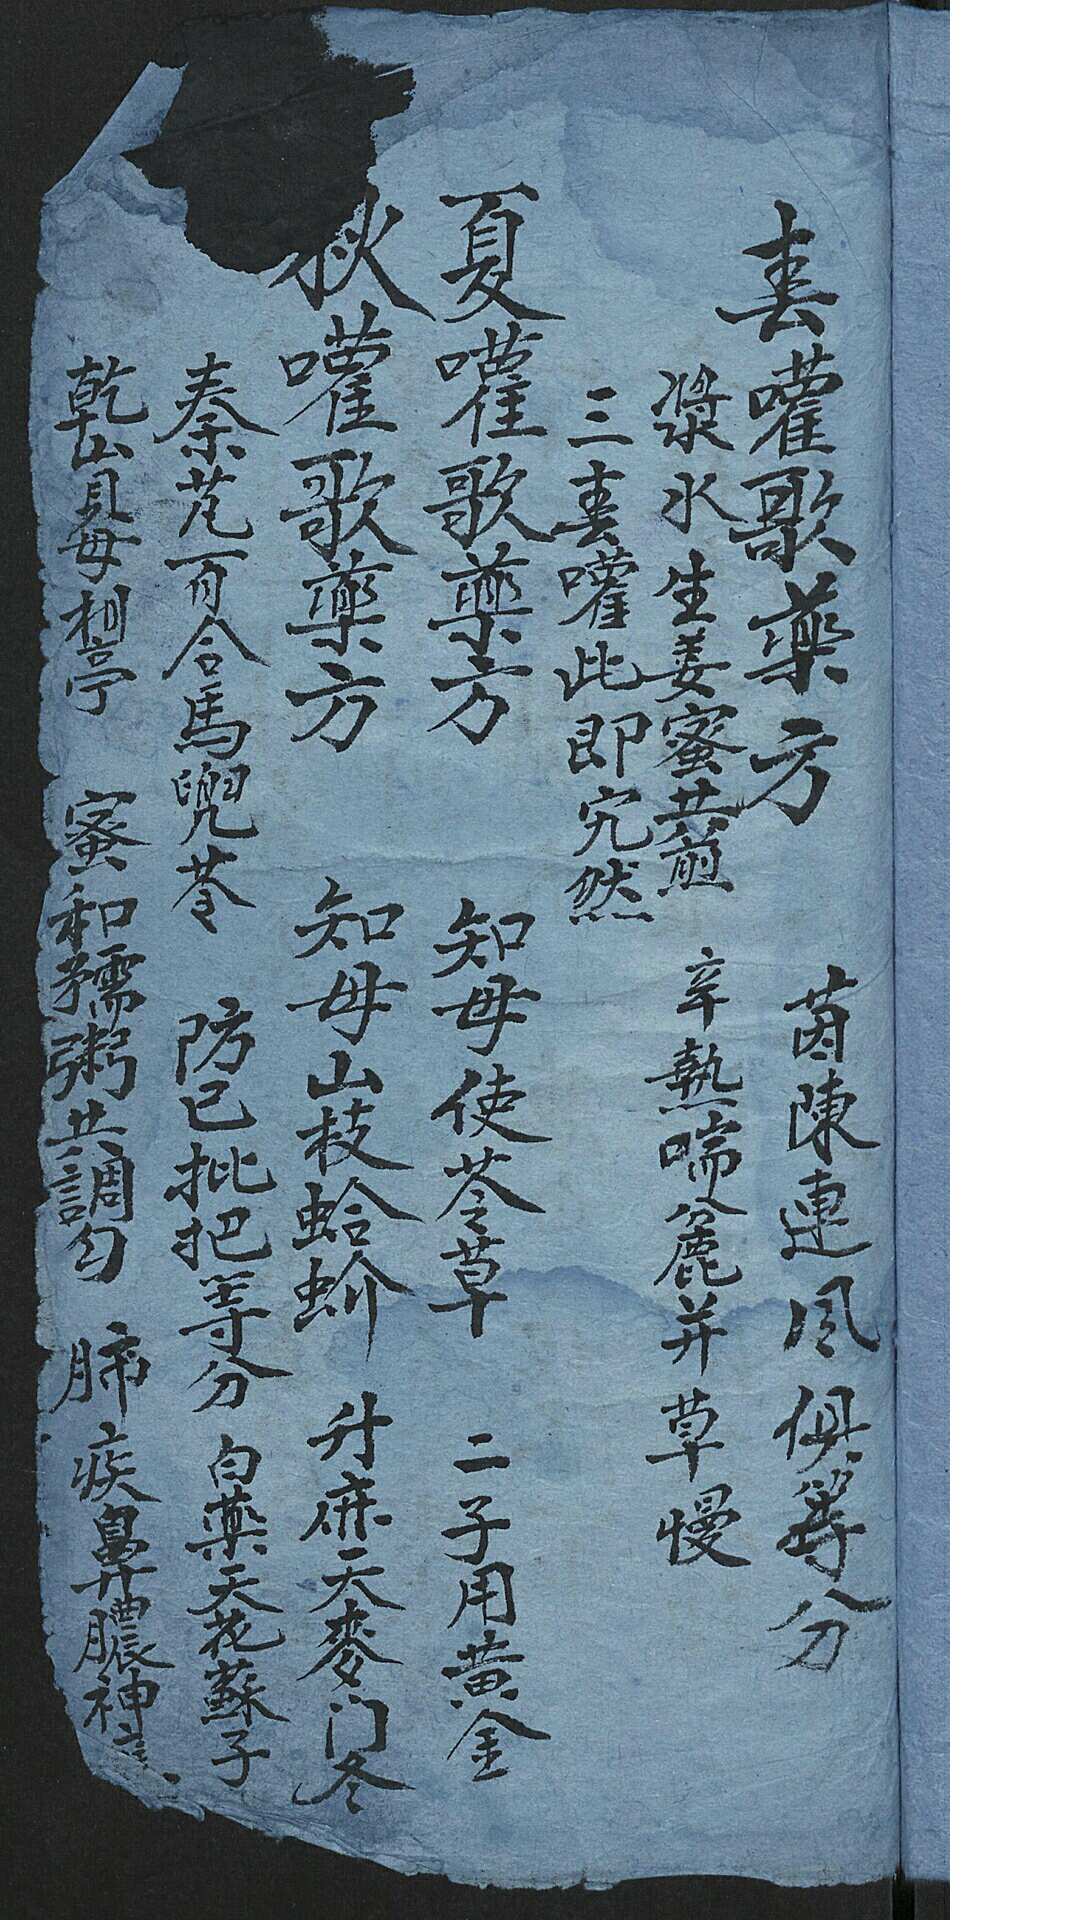 春嚾歌藥方 茵陳連風俱等分
漿水生姜蜜共煎 辛熱喘麄并草慢
三春嚾此即宂然
夏嚾歌藥方 知母使苓草 二子用黄金
秋嚾歌藥方 知母山枝蛤蚧 升麻天麥门冬
秦艽百合馬兜苓 防已批把等分 白藥天花蘇子
乾山貝母相亭 蜜和糯粥共調匀 肺疾鼻膿神